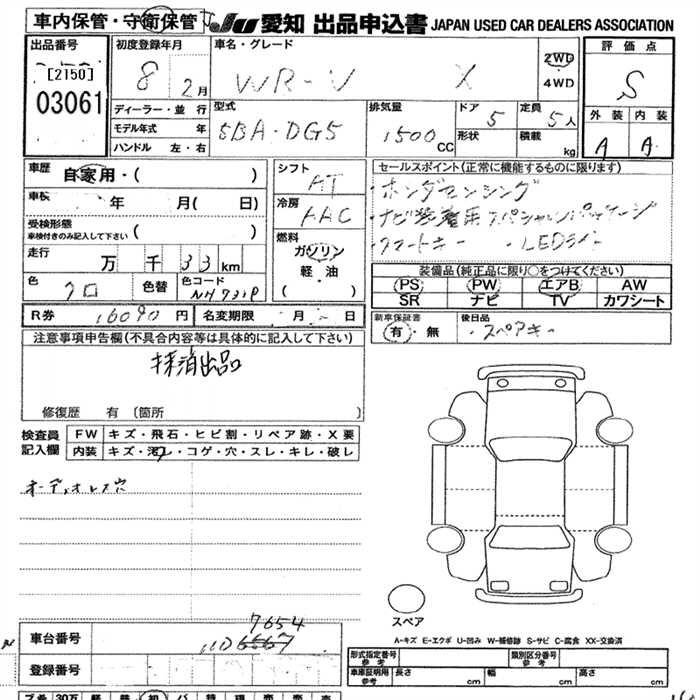 車内保管・守衛保管
JU 愛知 出品申込書 JAPAN USED CAR DEALERS ASSOCIATION
出品番号
[2150]
03061
初度登録年月
8 2月
車名・グレード
WR-V X
2WD
4WD
評価点
S
外装 内装
A A
ディーラー・並行
モデル年式 年
ハンドル 左・右
型式
5BA-DG5
排気量
1500 CC
ドア
5
形状
定員
5人
積載
kg
車歴 自家用・( )
車検 年 月( 日)
受検形態
車検付きのみ記入して下さい ( )
走行 万 千 33 km
色 クロ
色替
色コード
NH731P
シフト
AT
冷房
AAC
燃料
ガソリン
軽・油
( )
セールスポイント(正常に機能するものに限ります)
・ホンダセンシング
・ナビ装着用スペシャルパッケージ
・スマートキー ・LEDライト
装備品(純正品に限り○をつけてください)
PS PW エアB AW
SR ナビ TV カワシート
R券 16090 円 名変期限 月 日
新車保証書
有・無
後日品
・スペアキー
注意事項申告欄(不具合内容等は具体的に記入して下さい)
抹消出品
修復歴 有 (箇所 )
検査員
記入欄
FW キズ・飛石・ヒビ割・リペア跡・X要
内装 キズ・汚レ・コゲ・穴・スレ・キレ・破レ
オーディオレス穴
スペア
A-キズ E-エクボ U-凹み W-補修跡 S-サビ C-腐食 XX-交換済
車台番号
7654
登録番号
形式指定番号
参考
類別区分番号
参考
車庫証明用
参考
長さ cm 幅 cm 高さ cm